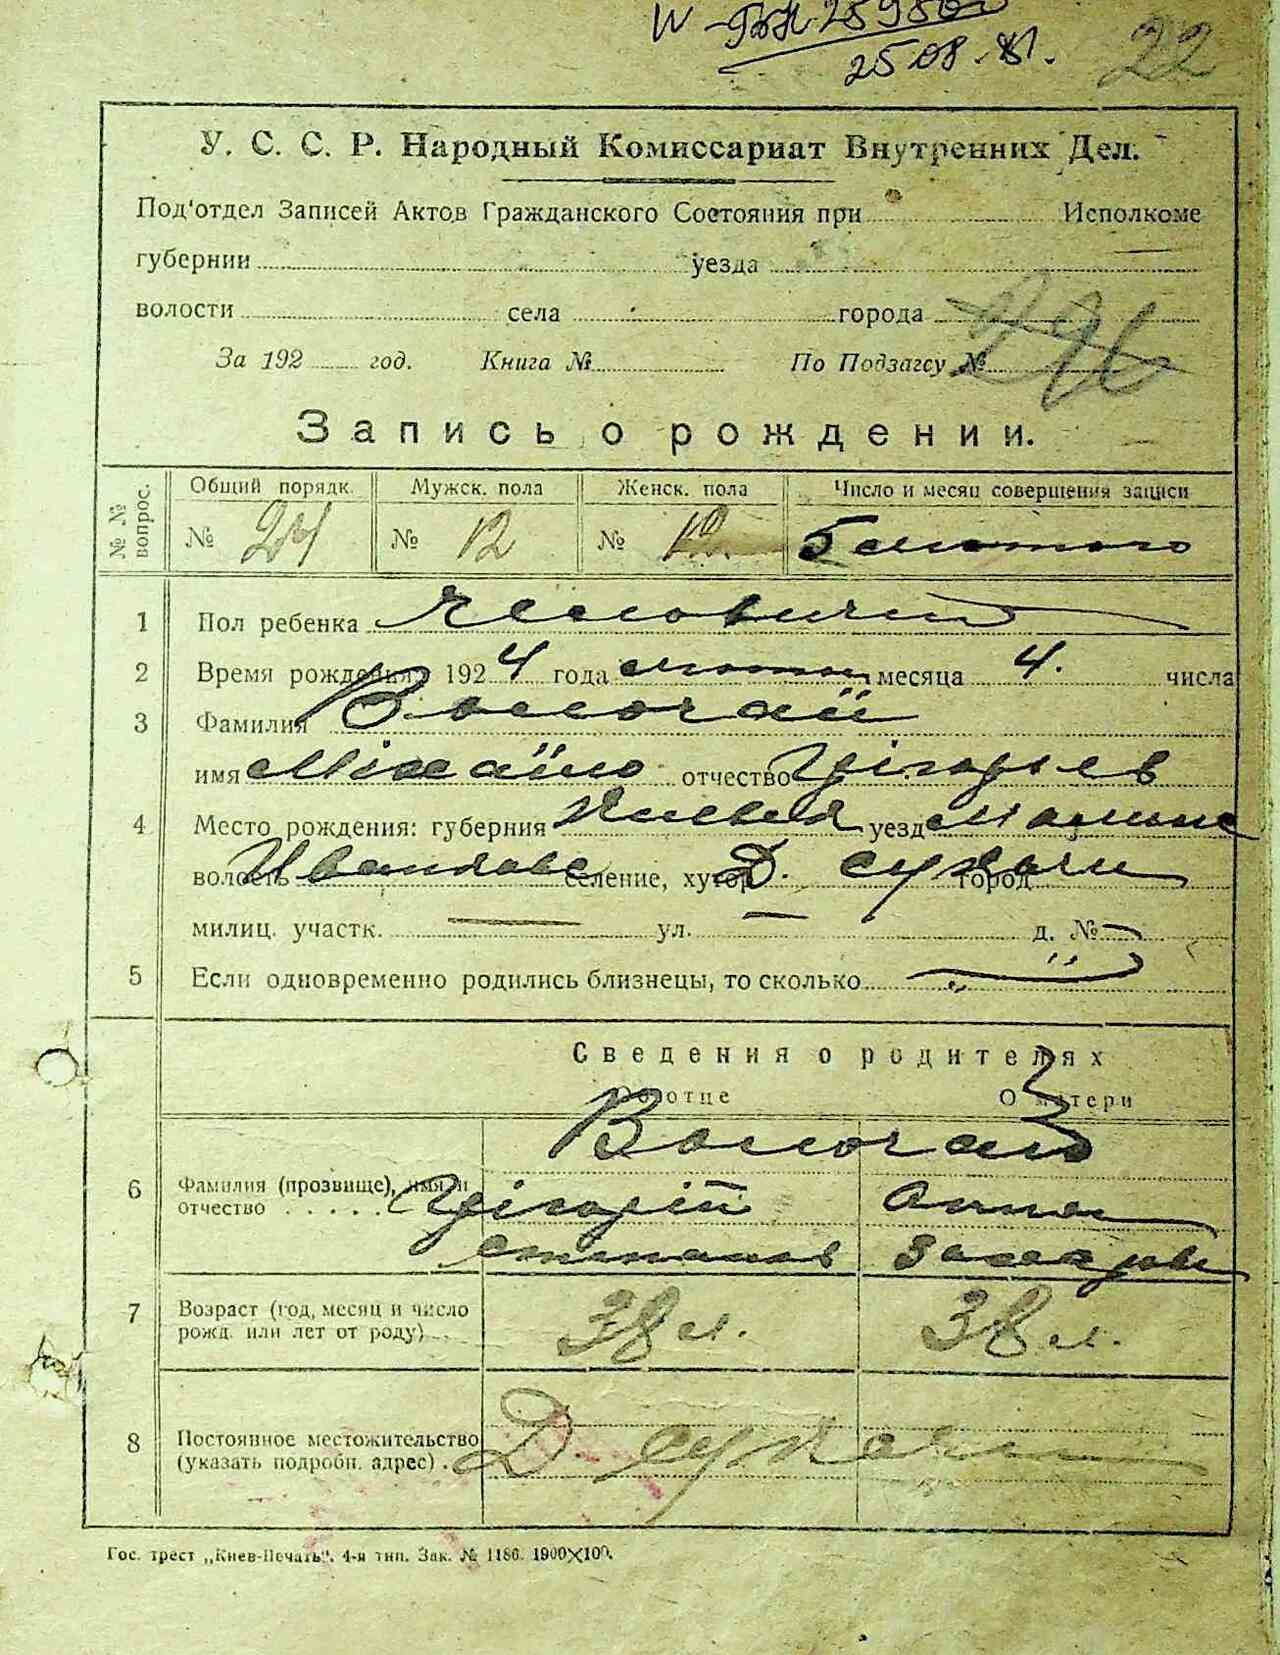 25 08. 81.
22
У. С. С. Р. Народный Комиссариат Внутренних Дел.
Под'отдел Записей Актов Гражданского Состояния при Исполкоме
губернии уезда
волости села города
За 192 год. Книга № По Подзагсу № 226
Запись о рождении.
№ № вопрос.
Общий порядк. Мужск. пола Женск. пола Число и месяц совершения записи
№ 24 № 12 № 12 5 лютого
1 Пол ребенка Чоловичий
2 Время рождения: 1924 года лютого месяца 4. числа
3 Фамилия Волочай
имя Міхайло отчество Грігорьев
4 Место рождения: губерния Киевск уезд Малинс
волость Иванковс селение, хутор Д. Сукачи город
милиц. участк. — ул. — д. №
5 Если одновременно родились близнецы, то сколько
Сведения о родителях
Об отце О матери
Волочай
6 Фамилия (прозвище), имя и
отчество . . . . . Грігорій Анна
Степанов Захаров
7 Возраст (год, месяц и число
рожд. или лет от роду) 38 л. 38 л.
8 Постоянное местожительство
(указать подробн. адрес) . Д Сукачи
Гос. трест „Киев-Печать". 4-я тип. Зак. № 1186. 1900×100.